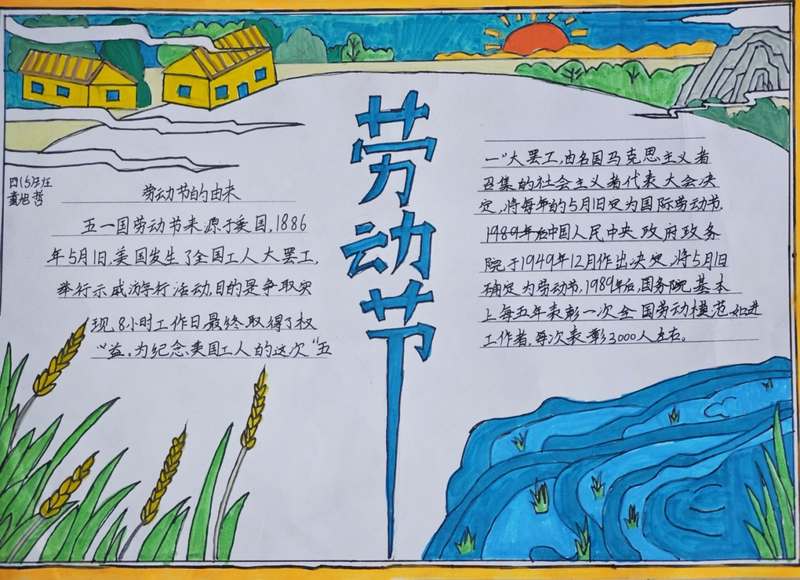 劳动节
四(5)班
黄旭哲
劳动节的由来
五一国劳动节来源于美国,1886
年5月1日,美国发生了全国工人大罢工,
举行示威游行活动,目的是争取实
现8小时工作日,最终取得了权
益,为纪念美国工人的这次“五
一”大罢工,由各国马克思主义者
召集的社会主义者代表大会决
定,将每年的5月1日定为国际劳动节,
1989年后中国人民中央政府政务
院于1949年12月作出决定,将5月1日
确定为劳动节,1989年后,国务院基本
上每五年表彰一次全国劳动模范和进
工作者,每次表彰3000人左右。